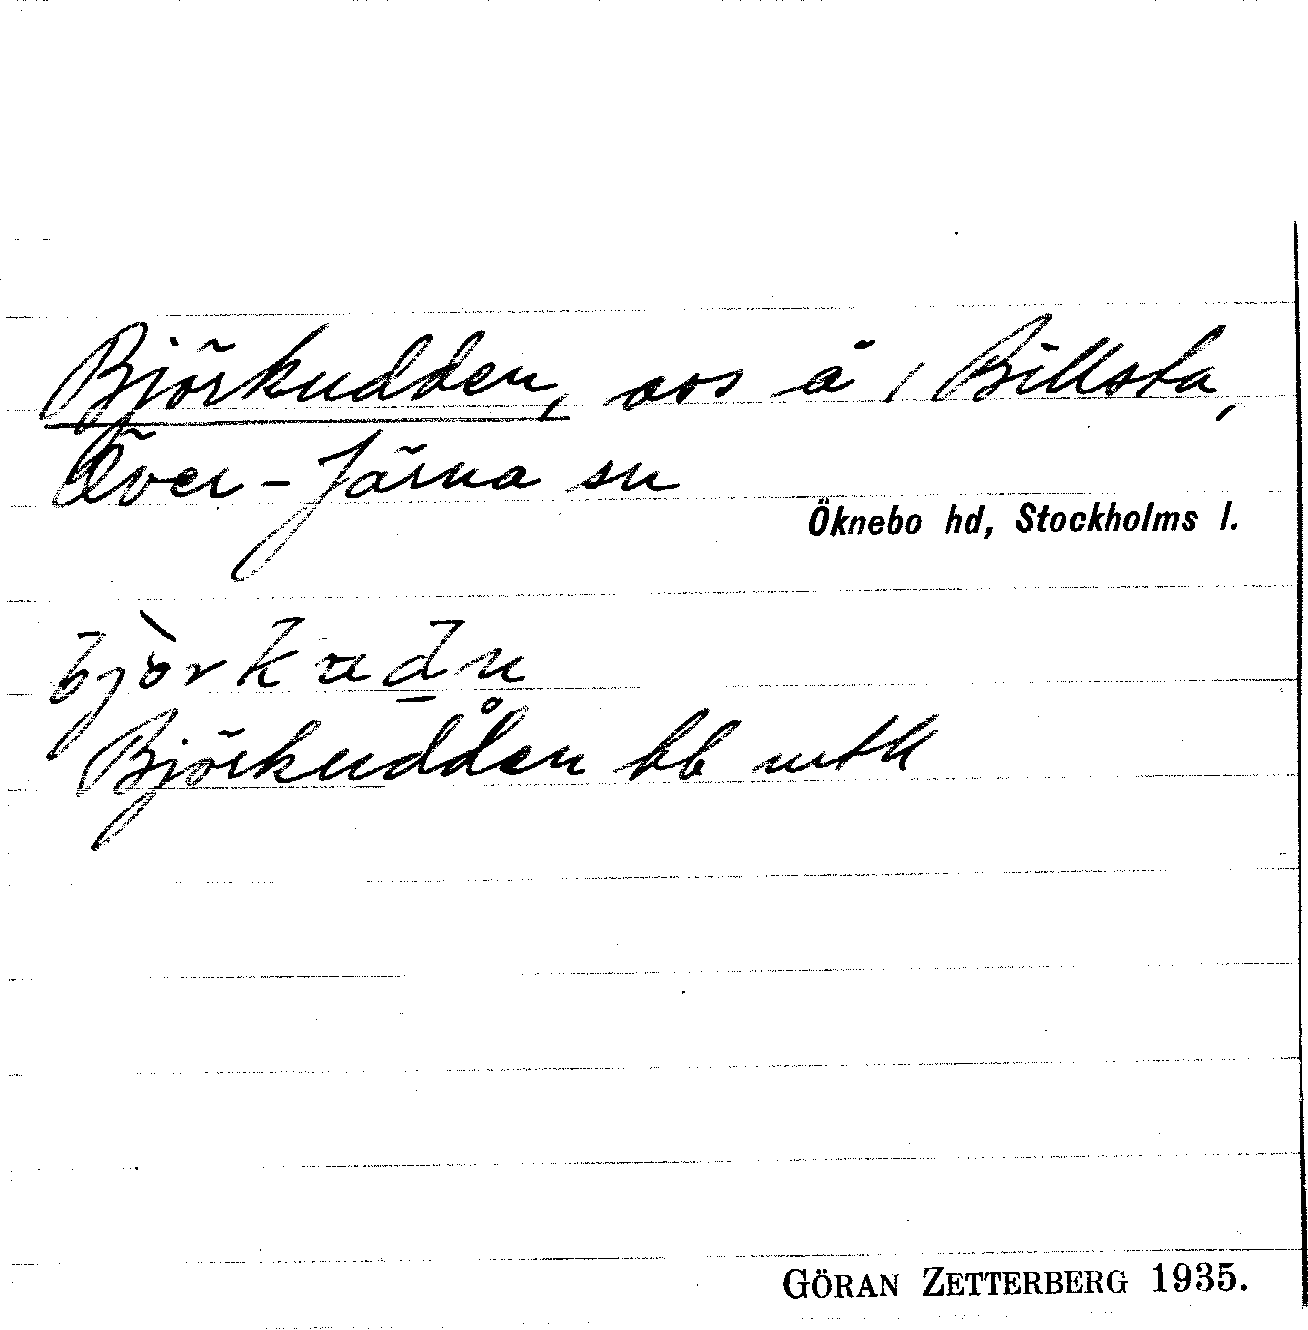 Björkudden, avs å / Billsta,
Över-Järna sn
Öknebo hd, Stockholms l.
bjòrkudn̥
Björkudden bb
GÖRAN ZETTERBERG 1935.